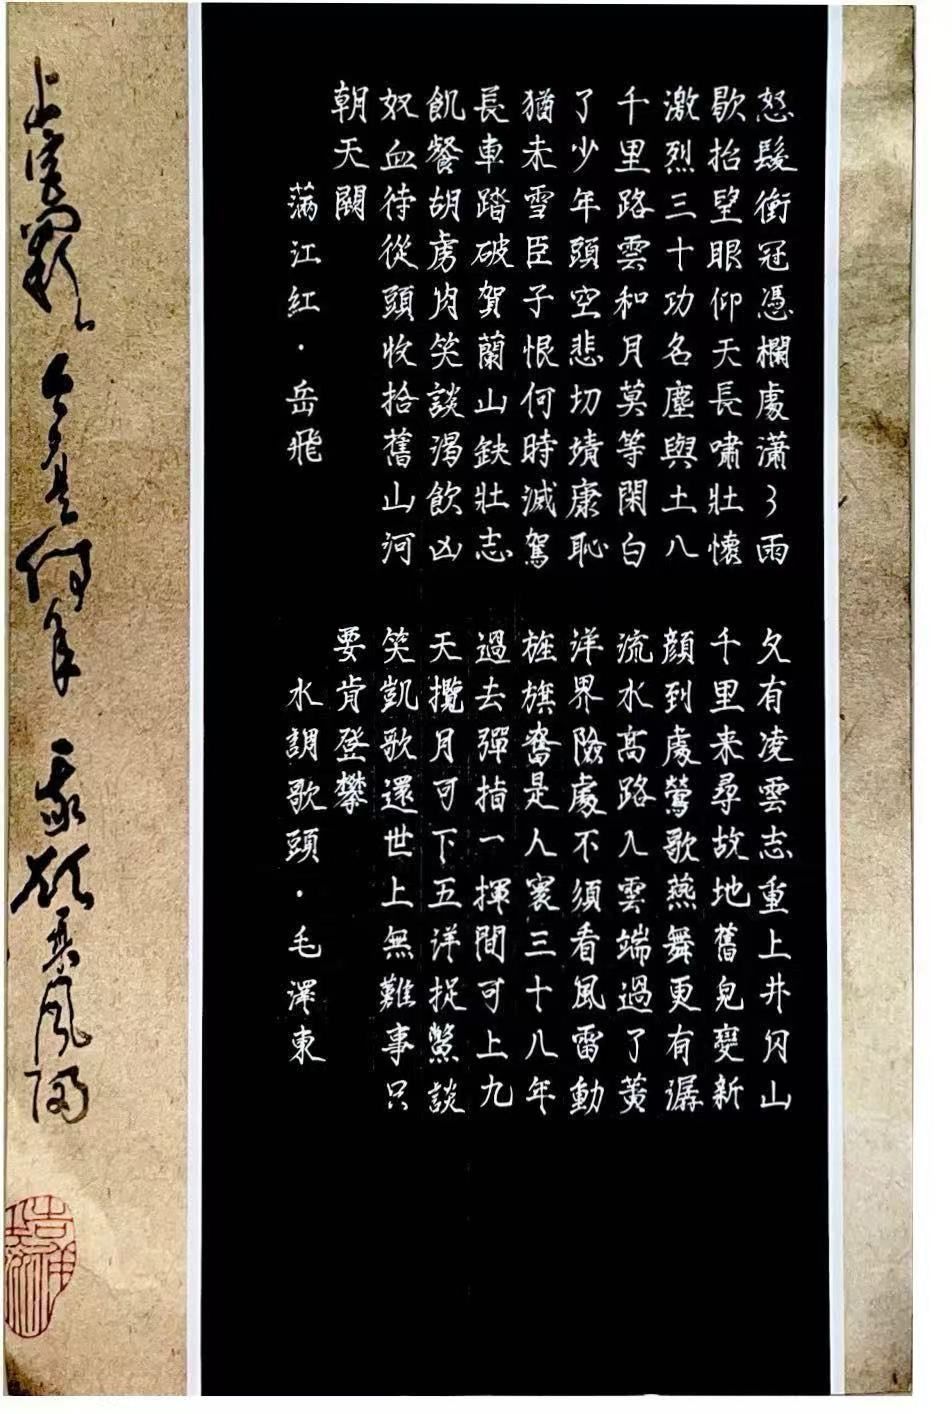 怒髮衝冠憑欄處潇々雨
歇抬望眼仰天長嘯壯懷
激烈三十功名塵與土八
千里路雲和月莫等閑白
了少年頭空悲切靖康恥
猶未雪臣子恨何時滅駕
長車踏破賀蘭山缺壯志
飢餐胡虜肉笑談渴飲凶
奴血待從頭收拾舊山河
朝天闕
满江紅·岳飛
久有凌雲志重上井冈山
千里来尋故地舊皃變新
顔到處鶯歌燕舞更有潺
流水高路入雲端過了黄
洋界險處不須看風雷動
旌旗奮是人寰三十八年
過去彈指一揮間可上九
天攬月可下五洋捉鱉談
笑凱歌還世上無難事只
要肯登攀
水調歌頭·毛澤東
上宫阙今夕是何年我欲乘风归